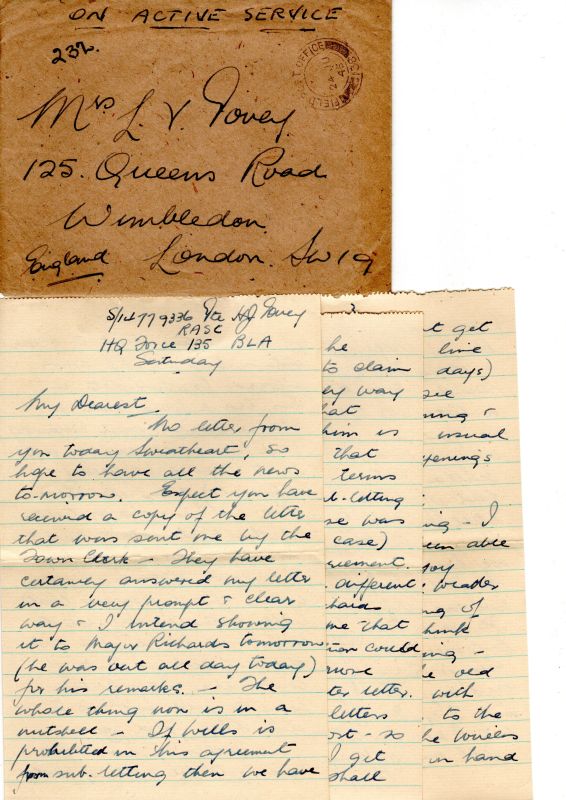 ON ACTIVE SERVICE
232.
FIELD POST OFFICE
24 JU
45
Mrs L. V. Tovey
125. Queens Road
Wimbledon
England London. SW19
S/14779336 Pte HJ Tovey
RASC
HQ Force 135 BLA
Saturday
My Dearest.
No letter from
you today Sweetheart, so
hope to have all the news
to-morrow. Expect you have
received a copy of the letter
that was sent me by the
Town Clerk – They have
certainly answered my letter
in a very prompt & clear
way & I intend showing
it to Major Richards tomorrow
(he was out all day today)
for his remarks. – The
whole thing now is in a
nutshell – If Wells is
prohibited in this agreement
from sub-letting then we have
he
to claim
ey way
hat
him is
that
terms
b-letting
se was
case)
reement.
different
hards
me that
ion could
more
ter letter.
letters
ort - so
I get
shall
t get
line
days)
see
ning &
usual
evenings
ing – I
een able
joy
weather
ng of
think
ing –
e old
with
to the
he wireless
in hand